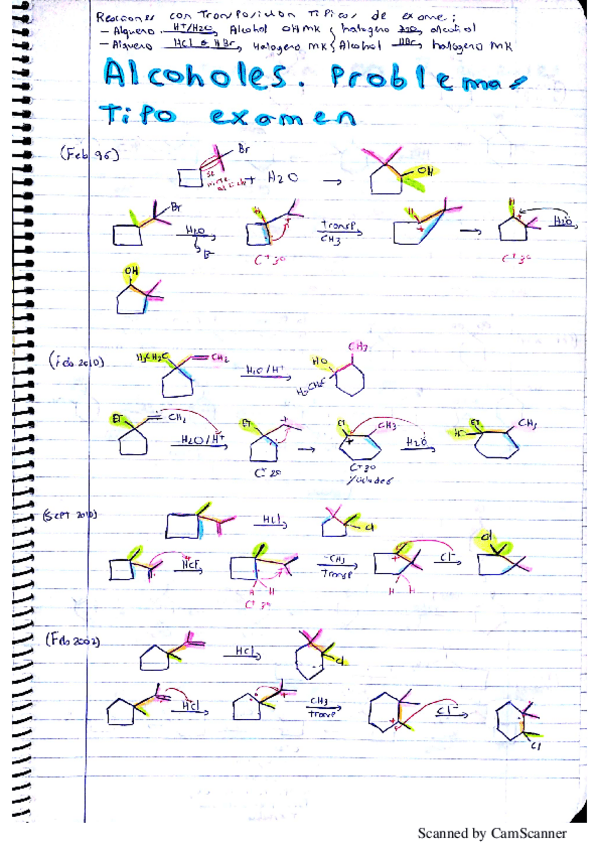 Reacciones con Transposición Típicos de examen:
- Alqueno H+/H2O Alcohol OH MK ; halogeno H2O alcohol
- Alqueno HCl o HBr halogeno MK ; Alcohol HBr halogeno MK
Alcoholes. Problemas
Tipo examen
(Feb 96)
Br + H2O → OH
Br H2O Br C+ 3º Transp CH3 C+ 3º H2O
OH
(Feb 2010)
H3CH2C CH2 H2O/H+ HO CH3 H3CH2C
Et CH2 H2O/H+ Et C+ 2º Et CH3 C+ 3º H2O Et HO CH3
y ciclo de 6
(Sept 2010)
HCl Cl
HCl H H C+ 3º -CH3 Transp H H Cl- Cl
(Feb 2002)
HCl Cl
HCl CH3 Transp Cl- Cl
Scanned by CamScanner